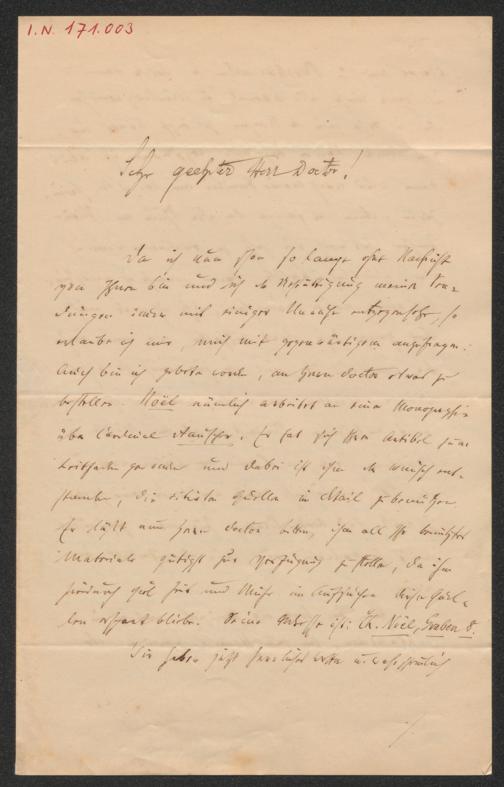 I.N. 171.003
Sehr geehrter Herr Doctor!
Da ich nun schon so lange ohne Nachricht
von Ihnen bin und ich der Bestätigung meiner Sen-
dungen immer mit einiger Unruhe entgegensehe, so
erlaube ich mir, mich mit gegenwärtigem anzufragen.
Auch bin ich gebeten worden, an Herrn Doctor etwas zu
bestellen. Noël nämlich arbeitet an einer Monographie
über Cardinal Rauscher. Er hat sich Ihren Artikel zum
und dabei ist ihm der Wunsch ent-
standen, die citirten Quellen im Detail zu benützen
Er läßt nun Herrn Doctor bitten, ihm all Ihr benütztes
Materiale gütigst zur Verfügung zu stellen, da ihm
hiedurch viel Zeit und Mühe im Aufsuchen dieser Quel-
len erspart bliebe. Seine Adresse ist: Noël, Graben 8.
Sie haben jetzt herrliches Wetter u. wahrscheinlich